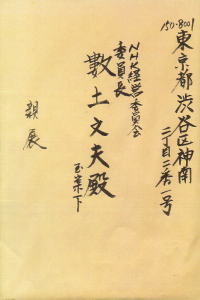 150-8001
東京都渋谷区神南
二丁目二番一号
NHK経営委員会
委員長
數土文夫殿
玉案下
親展